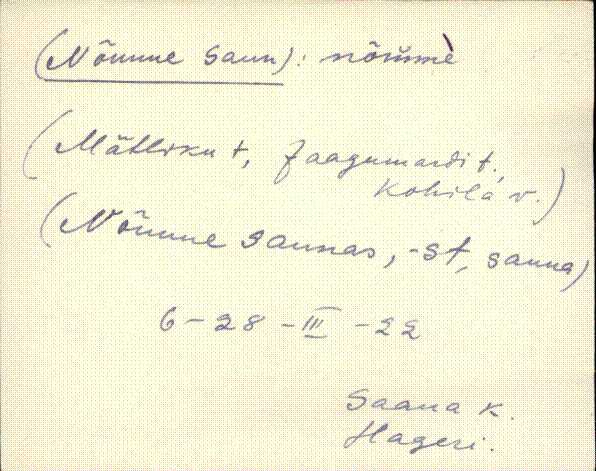 (Nõmme saun): nõm̆mè
(Mätliku t, Jaagumardi t.,
Kohila v.)
(Nõmme saunas, -st, sauna)
6-28-III-22
Saana k.
Hageri.